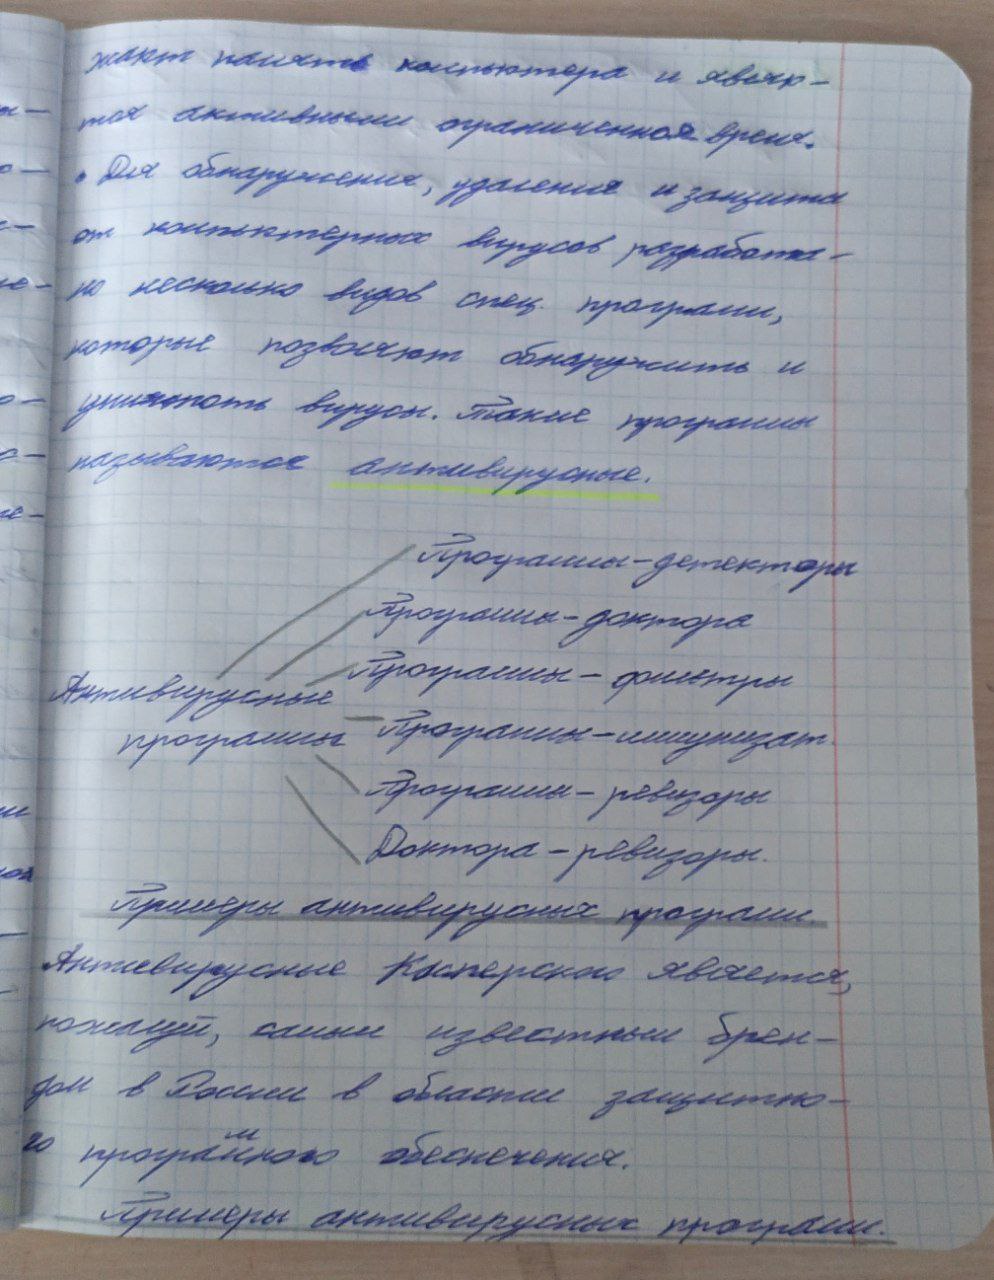 жают память компьютера и являю-
тся активными ограниченной время.
• Для обнаружения, удаления и защита
от компьютерных вирусов разработа-
но несколько видов спец. программ,
которые позволяют обнаружить и
уничтожать вирусы. Такие программы
называются антивирусные.
Программы-детекторы
Программы-доктора
Программы-фильтры
Антивирусные
программы
Программы-иммунизат.
Программы-ревизоры
Доктора-ревизоры.
Примеры антивирусных программ.
Антивирусные Касперского является,
пожалуй, самым известным брен-
дом в России в области защитно-
го программного обеспечения.
Примеры антивирусных программ.